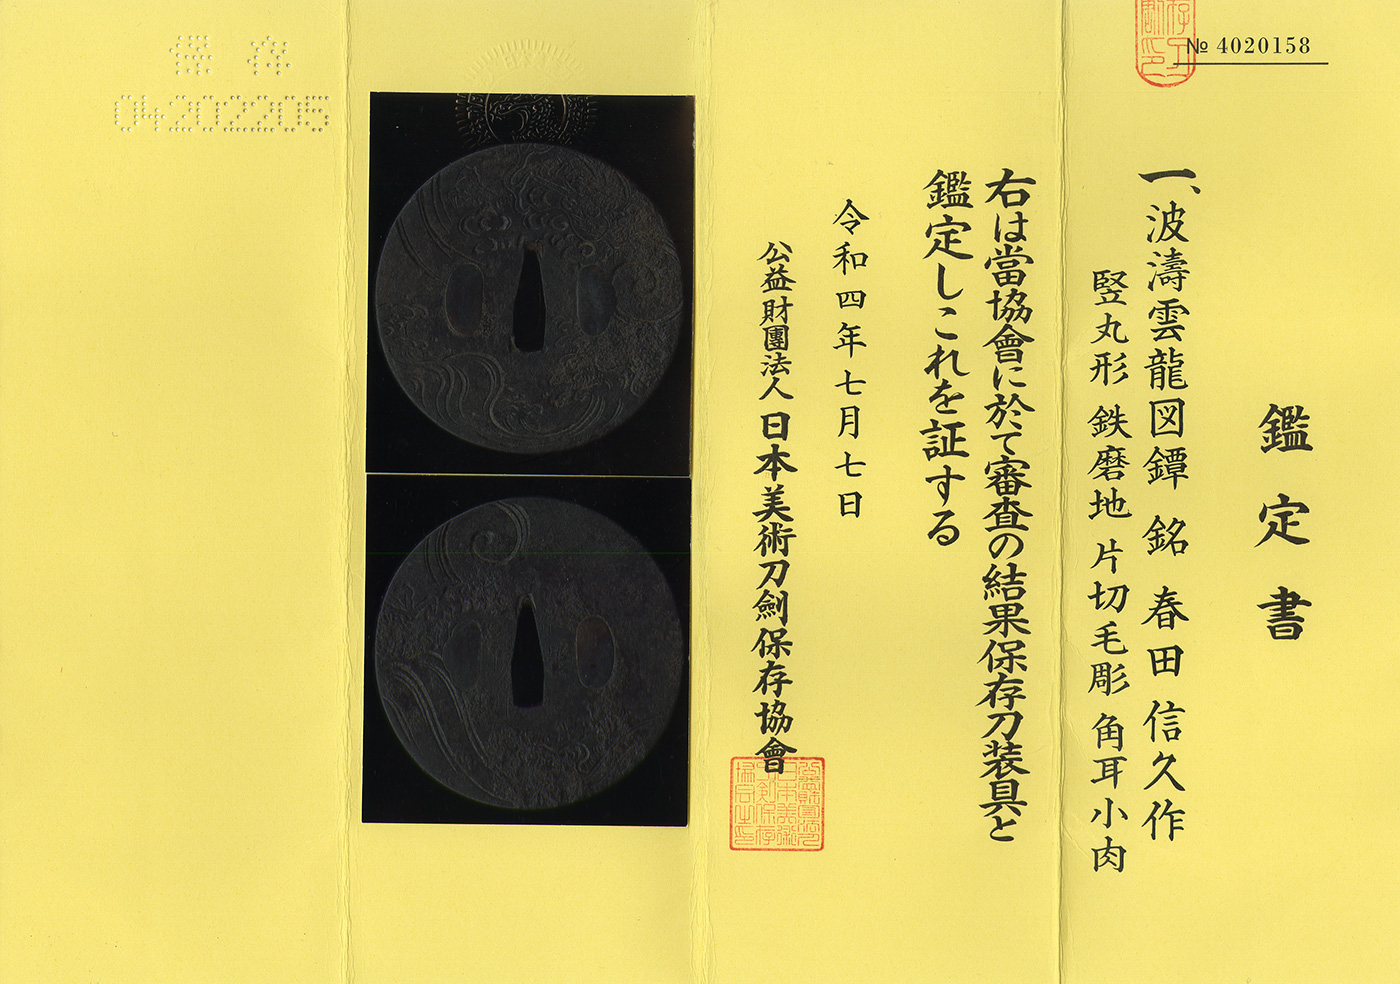 № 4020158
鑑定書
一、波濤雲龍図鐔 銘 春田信久作
竪丸形 鉄磨地 片切毛彫 角耳小肉
右は當協會に於て審査の結果保存刀装具と
鑑定しこれを証する
令和四年七月七日
公益財團法人 日本美術刀劍保存協會
保存
04202205